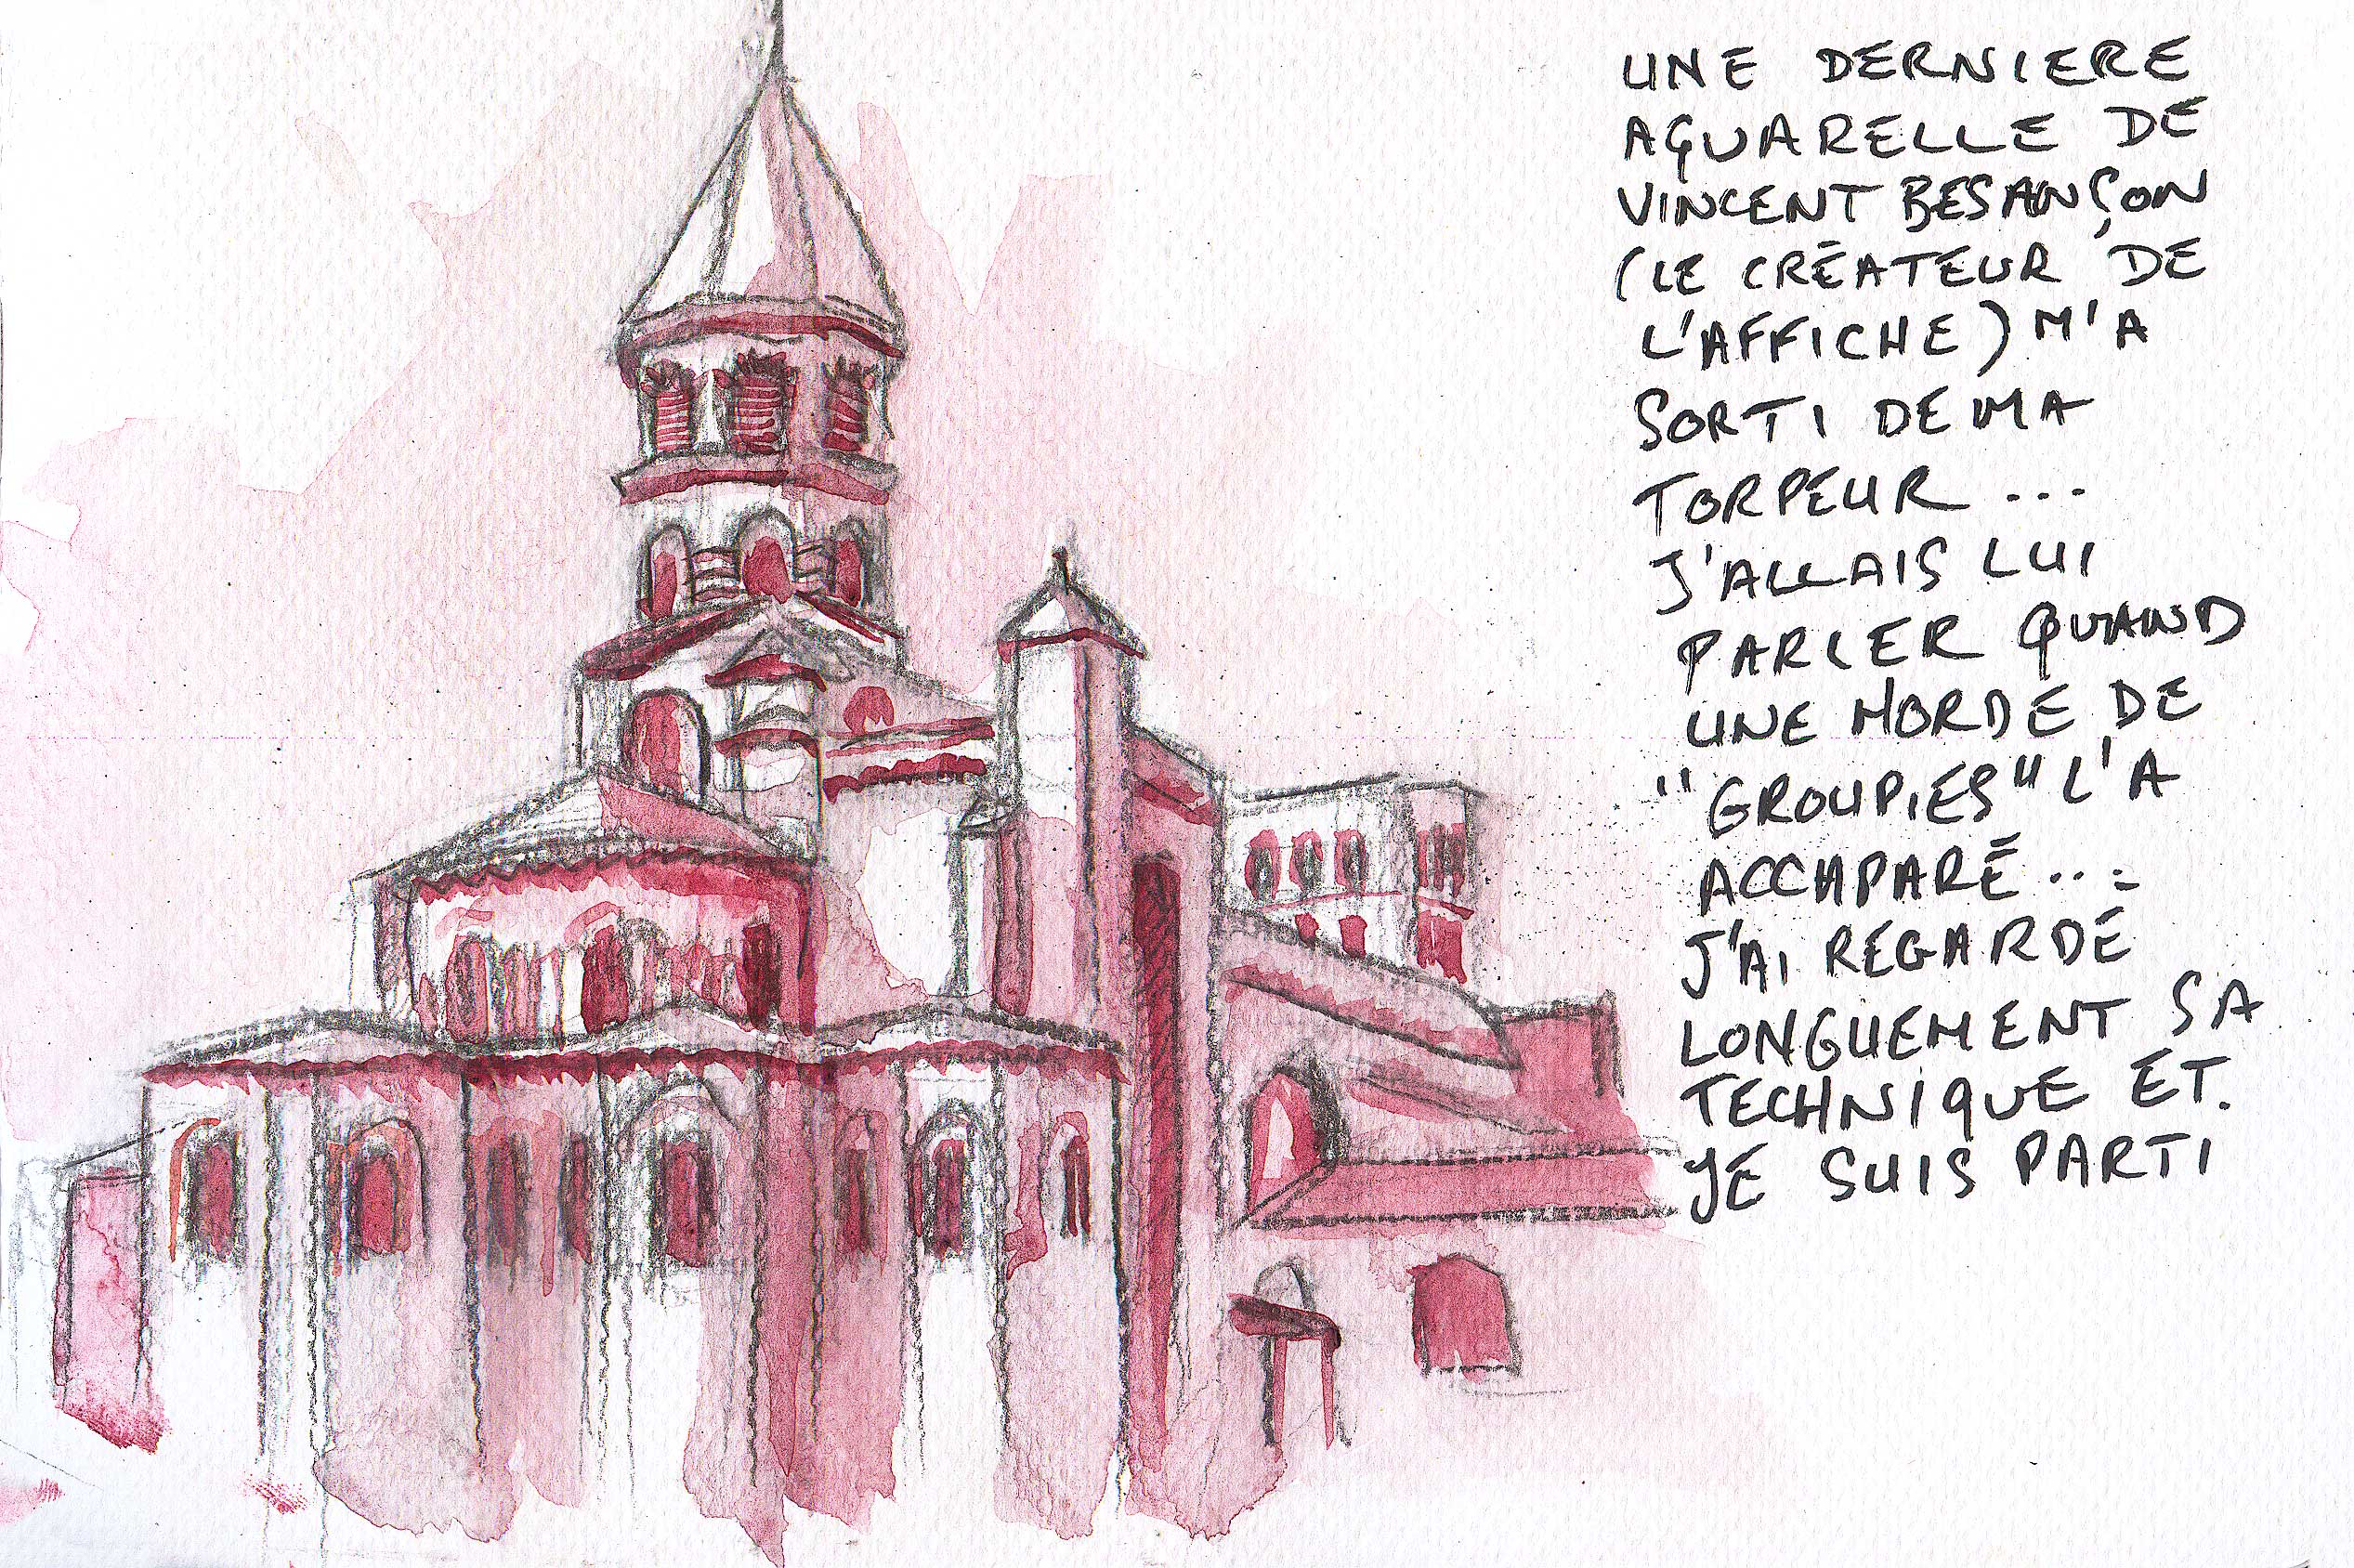 UNE DERNIERE
AQUARELLE DE
VINCENT BESANÇON
(LE CRÉATEUR DE
L'AFFICHE) M'A
SORTI DE MA
TORPEUR ...
J'ALLAIS LUI
PARLER QUAND
UNE HORDE DE
"GROUPIES" L'A
ACCAPARÉ...
J'AI REGARDÉ
LONGUEMENT SA
TECHNIQUE ET.
JE SUIS PARTI